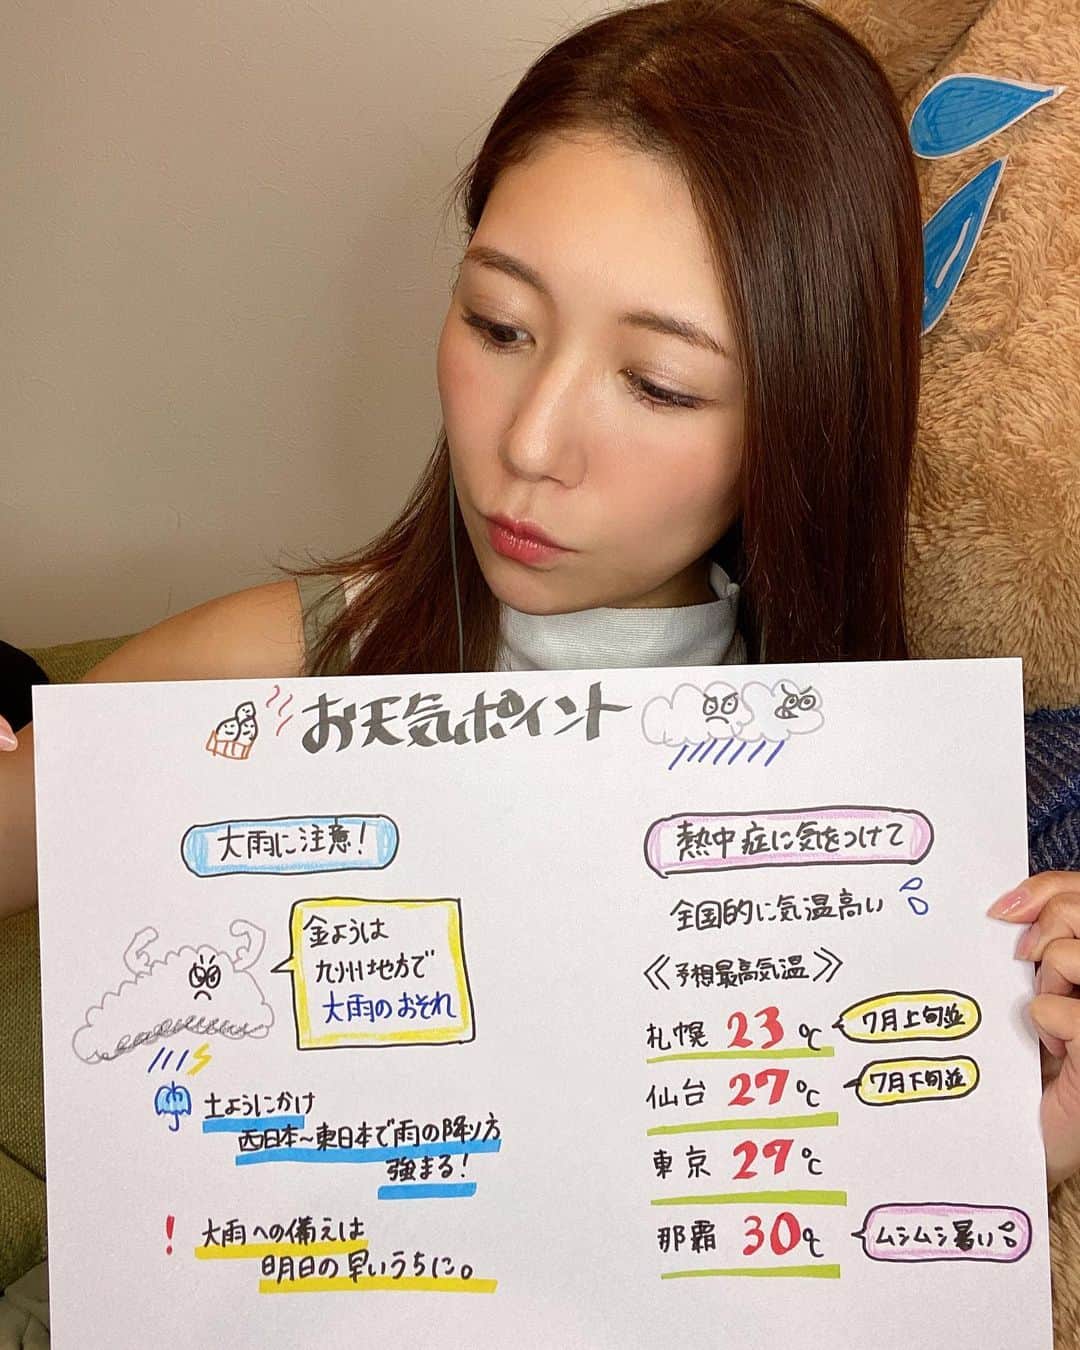 お天気ポイント
大雨に注意！
金ようは
九州地方で
大雨のおそれ
土ようにかけ
西日本～東日本で雨の降り方
強まる！
！大雨への備えは
明日の早いうちに。
熱中症に気をつけて
全国的に気温高い
《予想最高気温》
札幌 23℃ 7月上旬並
仙台 27℃ 7月下旬並
東京 29℃
那覇 30℃ ムシムシ暑い